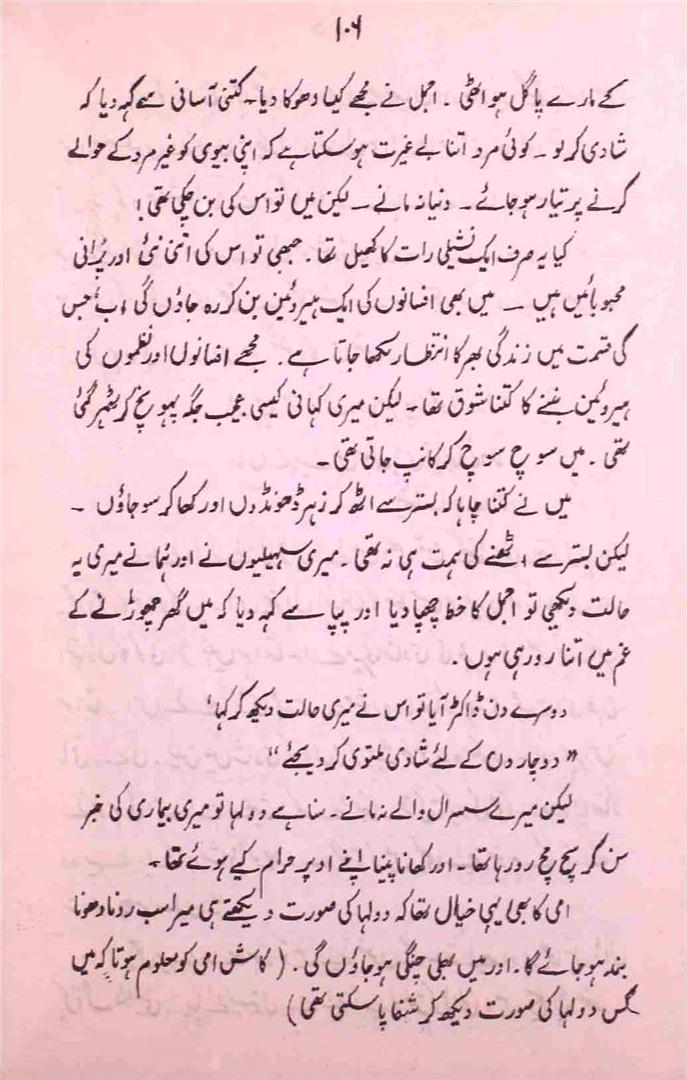 ۱۰۶
کے مارے پاگل ہو اٹھی ۔ اجمل نے مجھے کیا دھوکا دیا۔ کتنی آسانی سے کہہ دیا کہ
شادی کر لو ۔ کوئی مرد اتنا بے غیرت ہو سکتا ہے کہ اپنی بیوی کو غیر مرد کے حوالے
کرنے پر تیار ہو جائے ۔ دنیا نہ مانے ۔ لیکن میں تو اس کی بن چکی تھی !
کیا یہ صرف ایک نشیلی رات کا کھیل تھا ۔ جبھی تو اس کی اتنی نئی اور پرانی
محبوبائیں ہیں ۔ میں بھی افسانوں کی ایک ہیروئین بن کر رہ جاؤں گی اب، جس
کی قسمت میں زندگی بھر کا انتظار لکھا جاتا ہے ۔ مجھے افسانوں اور نظموں کی
ہیروئین بننے کا کتنا شوق تھا ۔ لیکن میری کہانی کیسی عجیب جگہ پہونچ کر ٹھہر گئی
تھی ۔ میں سوچ سوچ کر کانپ جاتی تھی ۔
میں نے کتنا چاہا کہ بستر سے اٹھ کر زہر ڈھونڈوں اور کھا کر سو جاؤں ۔
لیکن بستر سے اٹھنے کی ہمت ہی نہ تھی ۔ میری سہیلیوں نے اور ہُما نے میری یہ
حالت دیکھی تو اجمل کا خط چھپا دیا اور پپا سے کہہ دیا کہ میں گھر چھوڑنے کے
غم میں اتنا رو رہی ہوں ۔
دوسرے دن ڈاکٹر آیا تو اس نے میری حالت دیکھ کر کہا ،
" دو چار دن کے لئے شادی ملتوی کر دیجئے "
لیکن میرے سسرال والے نہ مانے ۔ سنا ہے دولہا تو میری بیماری کی خبر
سن کر سچ مچ رو رہا تھا ۔ اور کھانا پینا اپنے اوپر حرام کیے ہوئے تھا ۔
امی کا بھی یہی خیال تھا کہ دولہا کی صورت دیکھتے ہی میرا سب رونا دھونا
بند ہو جائے گا ۔ اور میں بھلی چنگی ہو جاؤں گی ۔ ( کاش امی کو معلوم ہوتا کہ میں
کس دولہا کی صورت دیکھ کر شفا پا سکتی تھی )